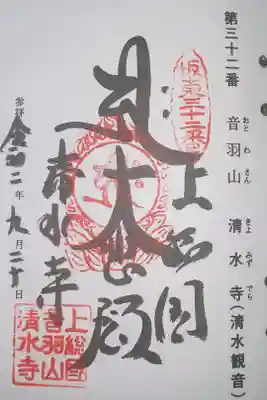 第三十二番 音羽山 清水寺(清水観音)
おとわさん きよみずでら
坂東三十二番
上総国
大悲殿
清水寺
参拝 令和二年九月二十日
上総国
音羽山
清水寺